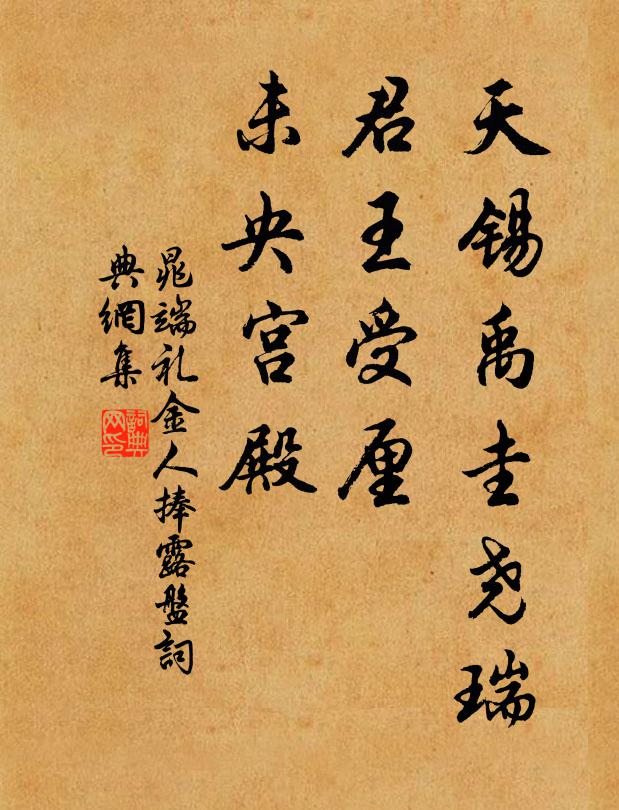 天锡禹圭尧瑞
君王受厘
未央宫殿
晁端礼金人捧露盘词
典網集
詞典網印